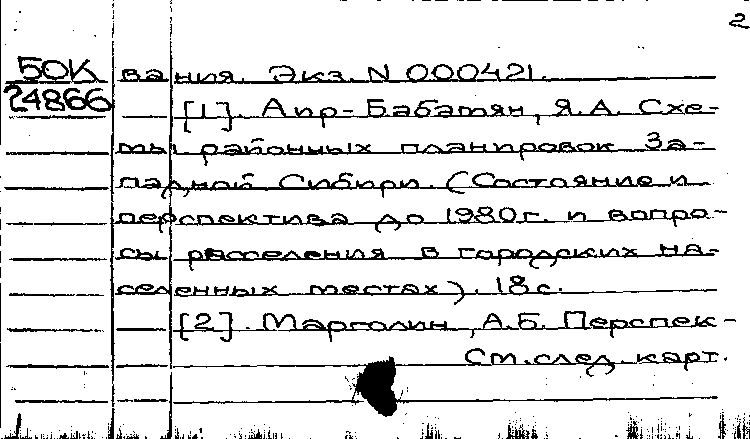 2
50К вания. Экз. N 000421.
24866 [1]. Апр-Бабатян, Я.А. Схе-
мы районных планировок За-
падной Сибири. (Состояние и
перспектива до 1980 г. и вопро-
сы расселения в городских на-
селенных местах). 18 с.
[2]. Марголин, А.Б. Перспек-
См. след. карт.